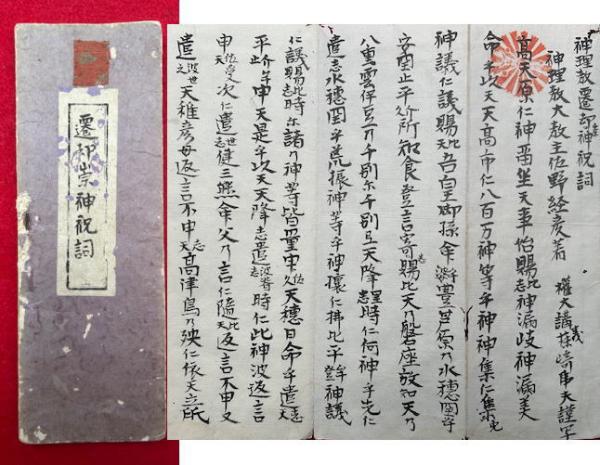 遷却崇神祝詞
神理教遷却神祝詞
神理教大教主佐野経彦著 権大講義
高天原仁神留坐天事始賜比志神漏岐神漏美
命乎以天天高市仁八百万神等乎神集仁集比
神議仁議賜比天吾皇御孫命豊葦原乃水穂国乎
安国止平介所知食登言寄賜比志天乃磐座放知天乃
八重雲伊豆乃千別尓千別弖天降志時仁何神乎先仁
遣志水穂国乎荒振神等乎神攘仁拂比平神議
仁議賜比志時尓諸乃神等皆量申佐久天穂日命乎遣志天
平介牟止申天是乎以天天降志遣志時仁此神波返言
申佐受天次仁遣志健三熊命父乃言仁隨比天返言不申又
遣志波世之天稚彦母返言不申志天高津鳥乃殃仁依天立処